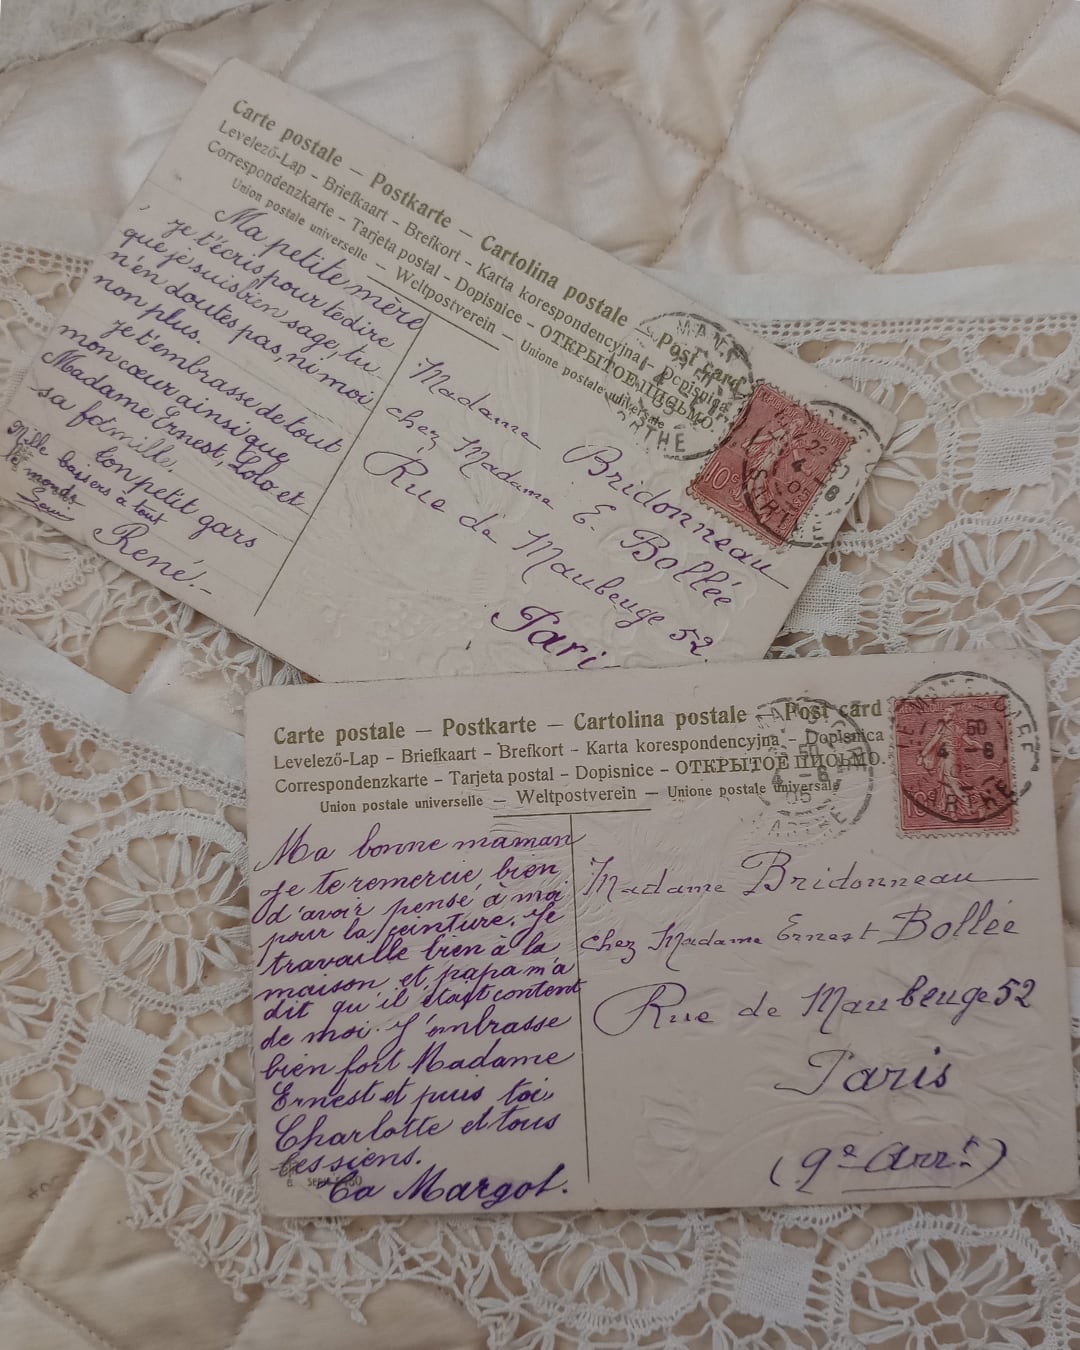 Carte postale — Postkarte — Cartolina postale — Post card
Levelező-Lap - Briefkaart - Brefkort - Karta korespondencyjna - Dopisnica
Correspondenzkarte - Tarjeta postal - Dopisnice - ОТКРЫТОЕ ПИСЬМО.
Union postale universelle — Weltpostverein — Unione postale universale
Ma petite mère
je t'écris pour te dire
que je suis bien sage, tu
n'en doutes pas, ni moi
non plus.
Je t'embrasse de tout
mon cœur ainsi que
Madame Ernest, Lolo et
sa famille.
Ton petit gars
René.
Mille baisers à tout
le monde
Madame Bridonneau
chez Madame E. Bollée
Rue de Maubeuge 52.
Paris
MANS
SARTHE
10c
Carte postale — Postkarte — Cartolina postale — Post card
Levelező-Lap - Briefkaart - Brefkort - Karta korespondencyjna - Dopisnica
Correspondenzkarte - Tarjeta postal - Dopisnice - ОТКРЫТОЕ ПИСЬМО.
Union postale universelle — Weltpostverein — Unione postale universale
Ma bonne maman
Je te remercie bien
d'avoir pensé à moi
pour la ceinture. Je
travaille bien à la
maison et papa m'a
dit qu'il était content
de moi. J'embrasse
bien fort Madame
Ernest et puis toi,
Charlotte et tous
les siens.
Ta Margot.
Madame Bridonneau
chez Madame Ernest Bollée
Rue de Maubeuge 52
Paris
(9e Arrt)
LE MANS
50
4 - 6
05
SARTHE
10c